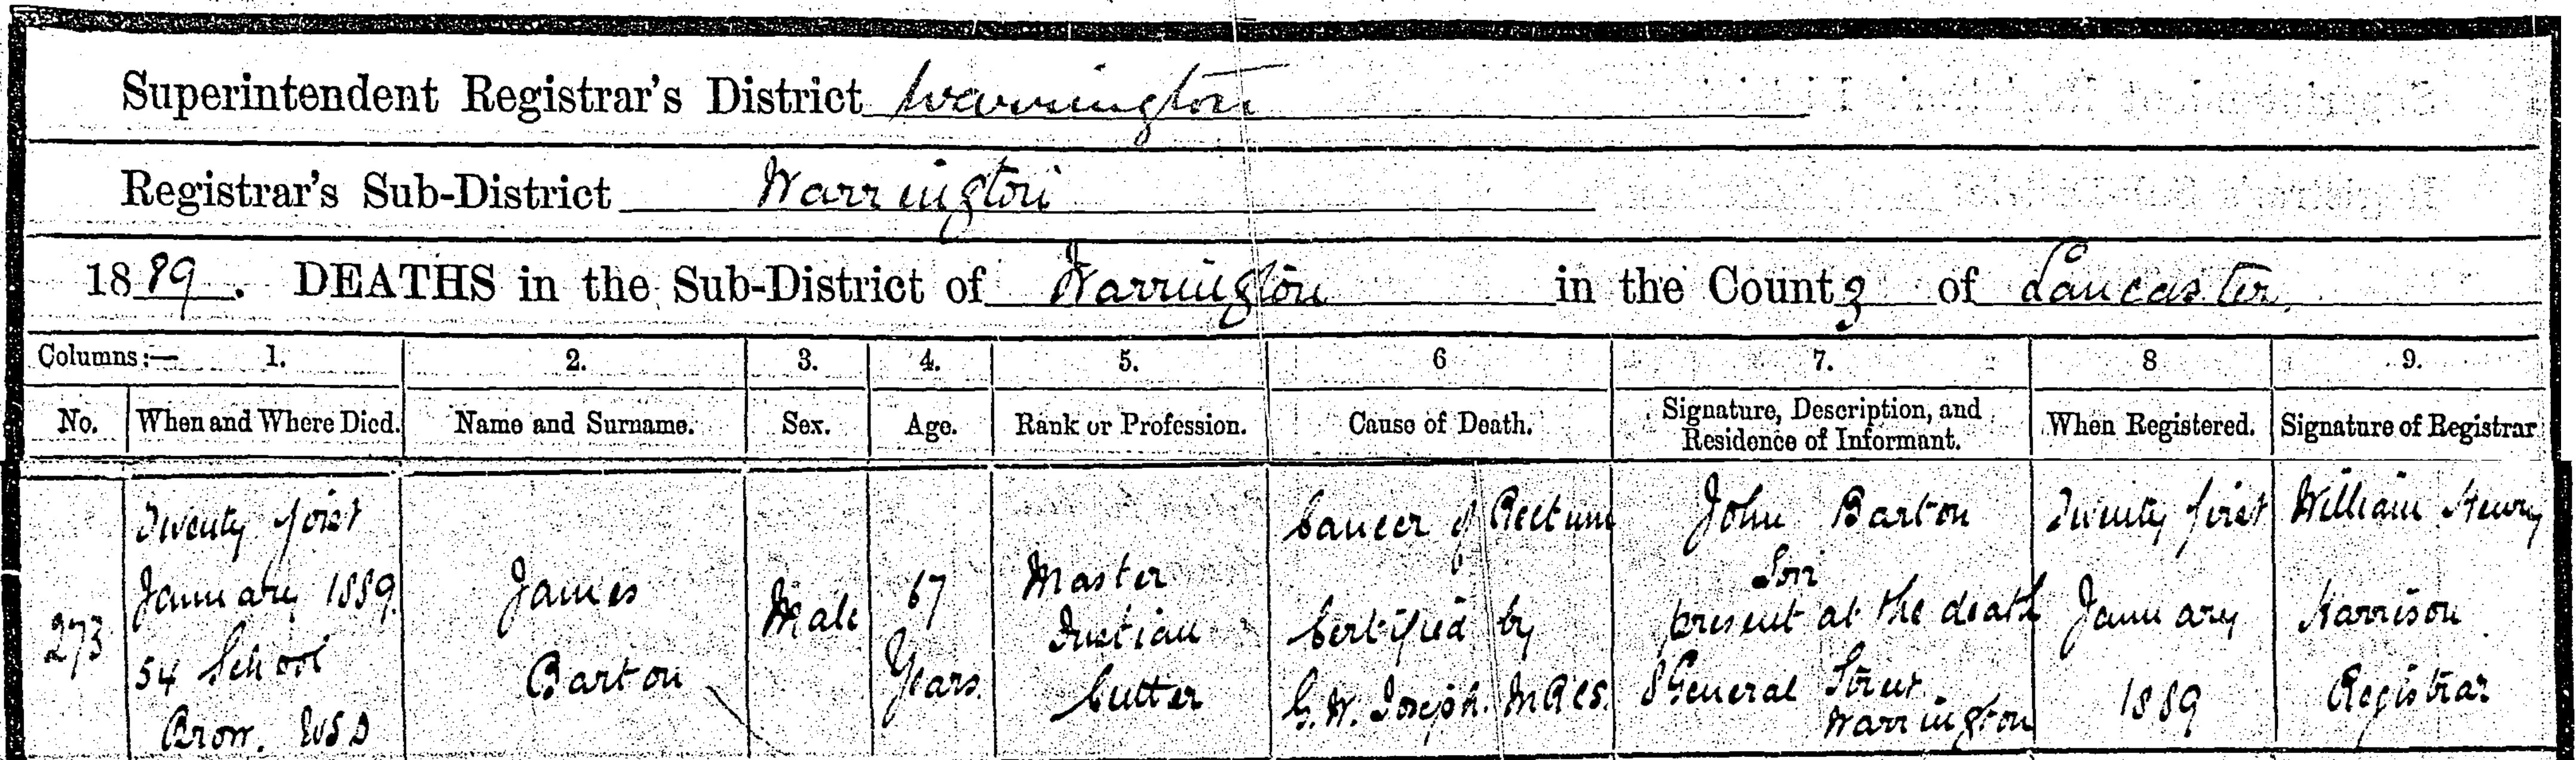 Superintendent Registrar's District Warrington
Registrar's Sub-District Warrington
1889. DEATHS in the Sub-District of Warrington in the County of Lancaster
Columns:— 1. 2. 3. 4. 5. 6 7. 8 9.
No. When and Where Died. Name and Surname. Sex. Age. Rank or Profession. Cause of Death. Signature, Description, and Residence of Informant. When Registered. Signature of Registrar
273
Twenty first
January 1889
54 School
Brow. USD
James
Barton
Male
67
Years
Master
Fustian
Cutter
Cancer of Rectum
Certified by
G.W. Joseph. MRCS.
John Barton
Son
present at the death
8 General Street
Warrington
Twenty first
January
1889
William Henry
Harrison
Registrar